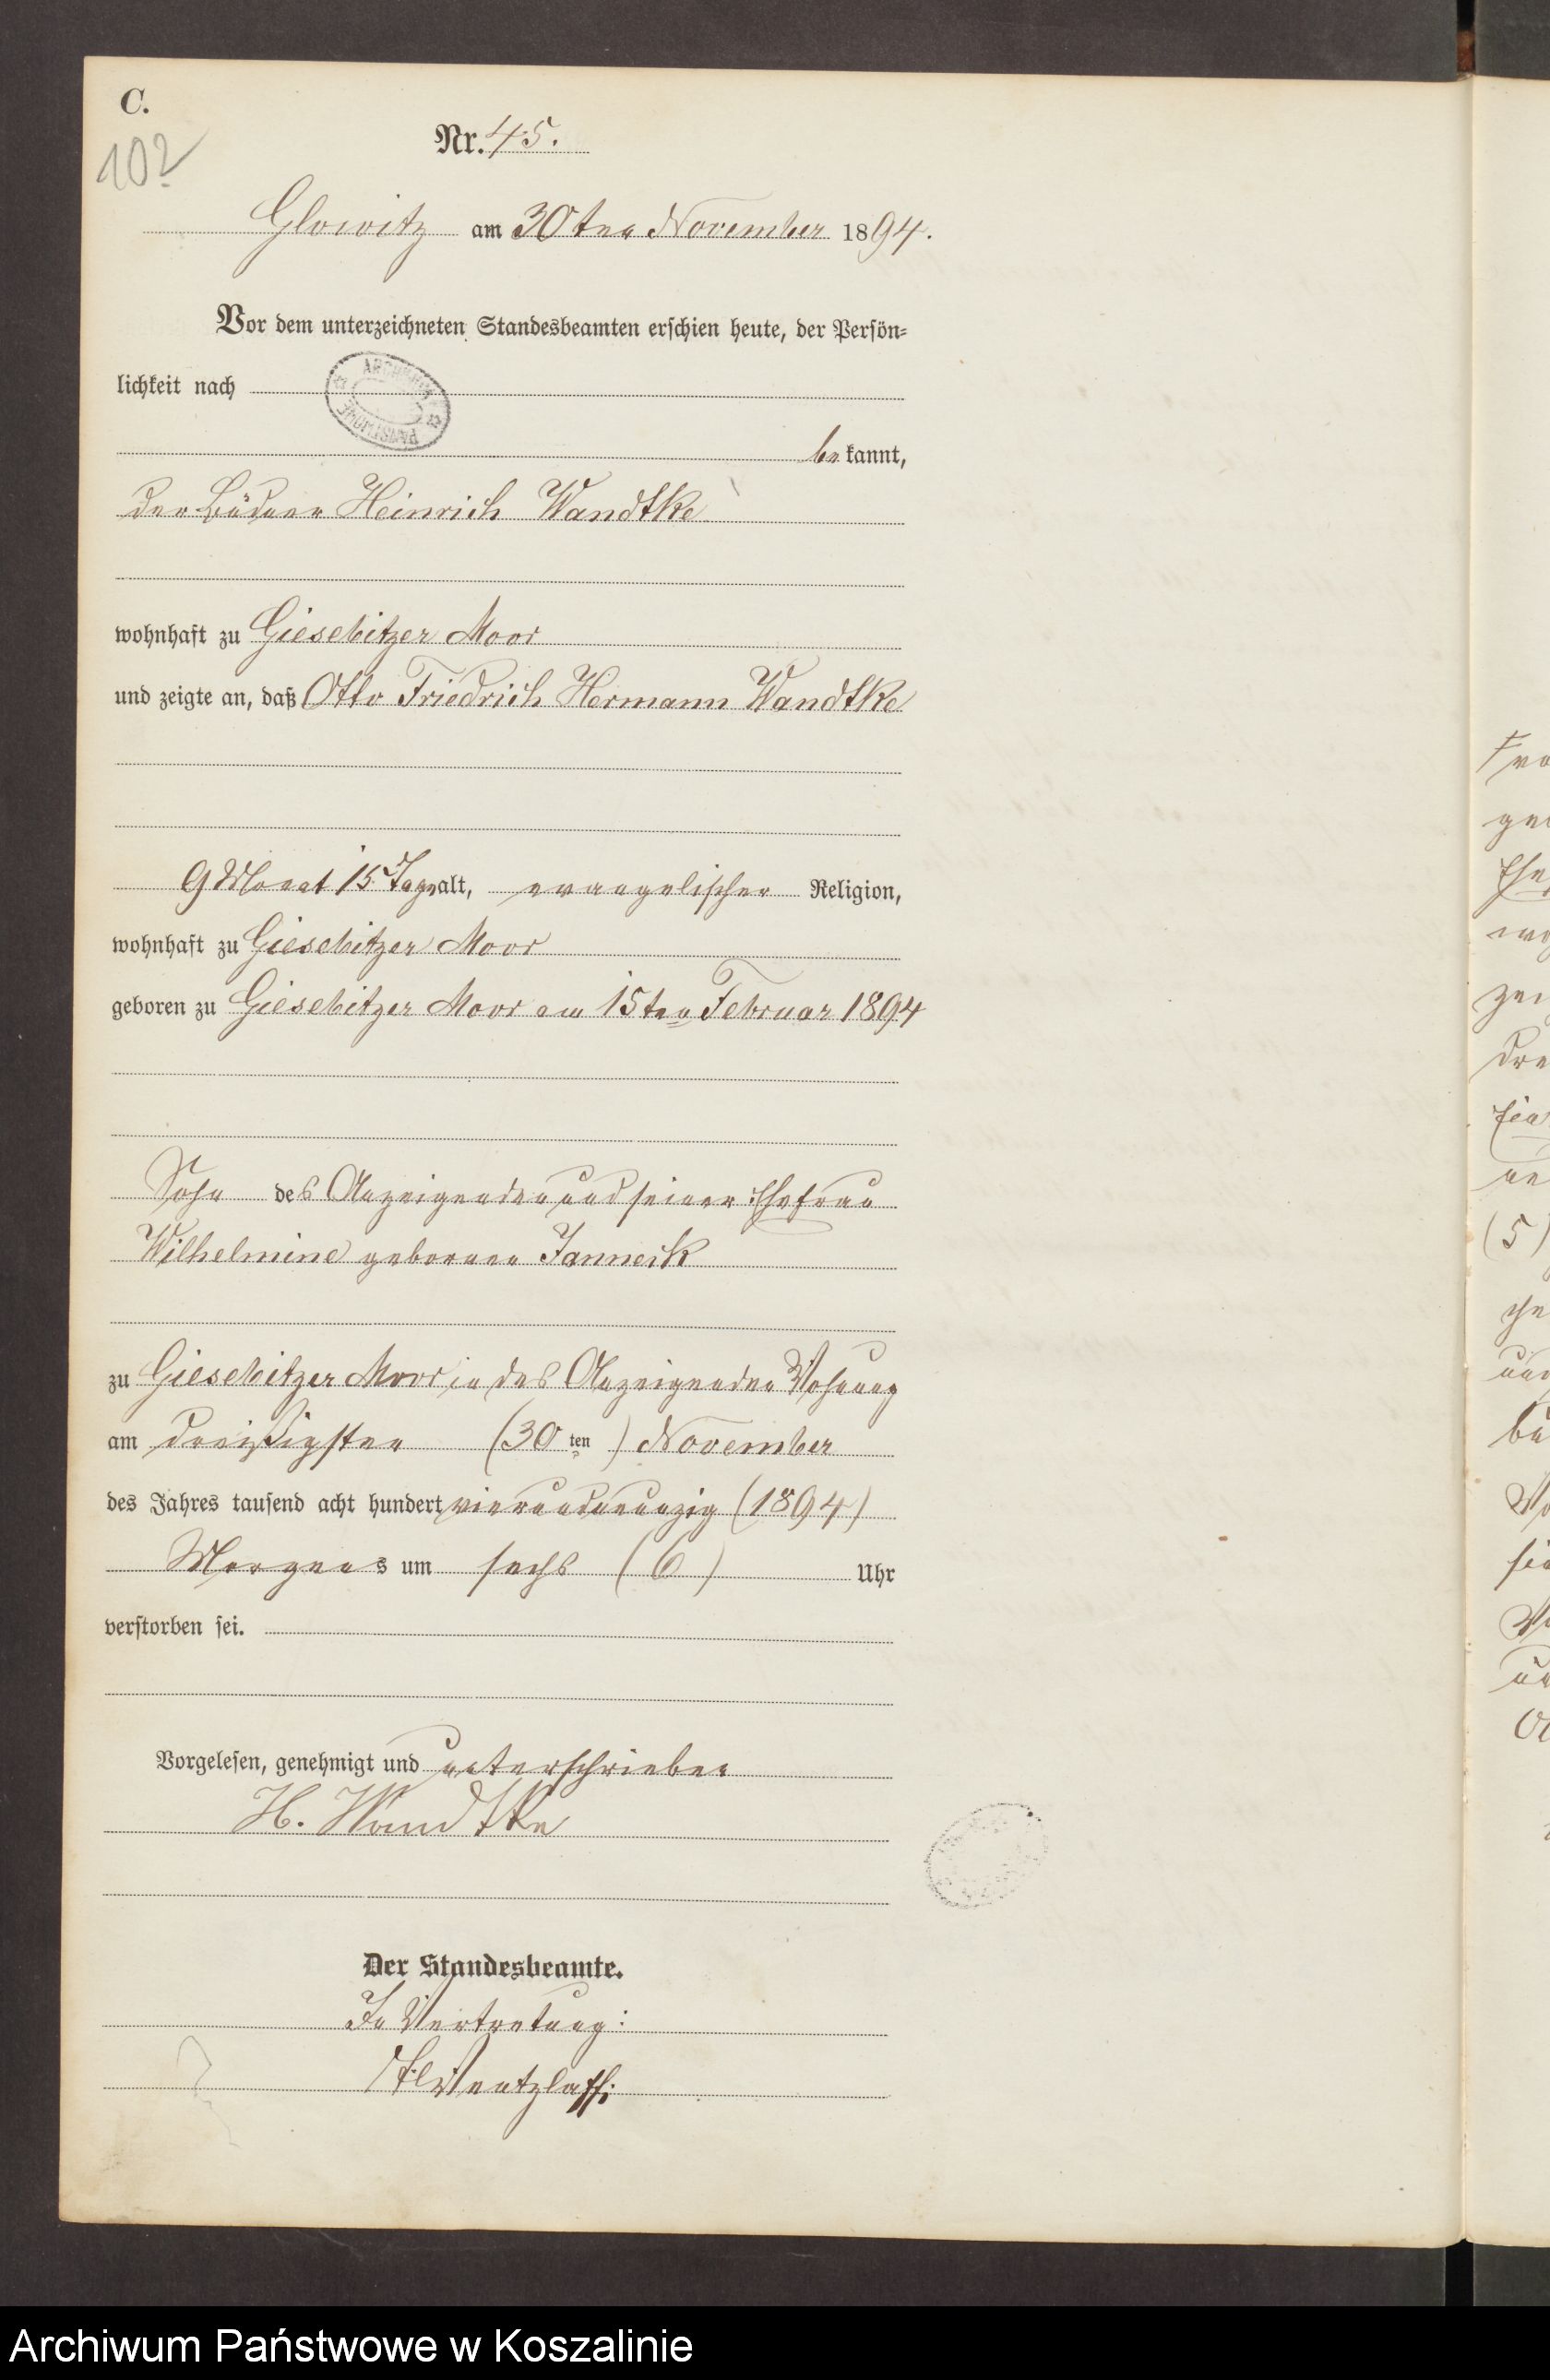 C.
102
Nr. 45.
Glowitz am 30ten November 1894.
Vor dem unterzeichneten Standesbeamten erschien heute, der Persön-
lichkeit nach
bekannt,
der Büdner Heinrich Wandtke
wohnhaft zu Giesebitzer Moor
und zeigte an, daß Otto Friedrich Hermann Wandtke
9 Monat 15 Tage alt, evangelischer Religion,
wohnhaft zu Giesebitzer Moor
geboren zu Giesebitzer Moor am 15ten Februar 1894
Sohn des Anzeigenden und seiner Ehefrau
Wilhelmine geborenen Janneck
zu Giesebitzer Moor in des Anzeigenden Wohnung
am dreißigsten (30 ten) November
des Jahres tausend acht hundert vierundneunzig (1894)
Morgens um sechs (6) Uhr
verstorben sei.
Vorgelesen, genehmigt und unterschrieben
H. Wandtke
Der Standesbeamte.
In Vertretung:
Wentzlaff.
ARCHIWUM PAŃSTWOWE
(5)
Archiwum Państwowe w Koszalinie